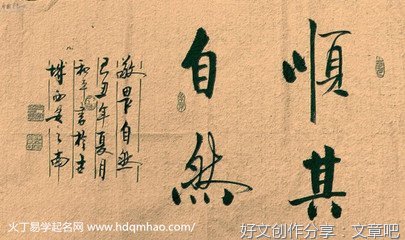 順其
自然
敬畏自然
己丑年夏月
和平書於古
城西安之南
火丁易学起名网 www.hdqmhao.com/
好文创作分享：文章吧